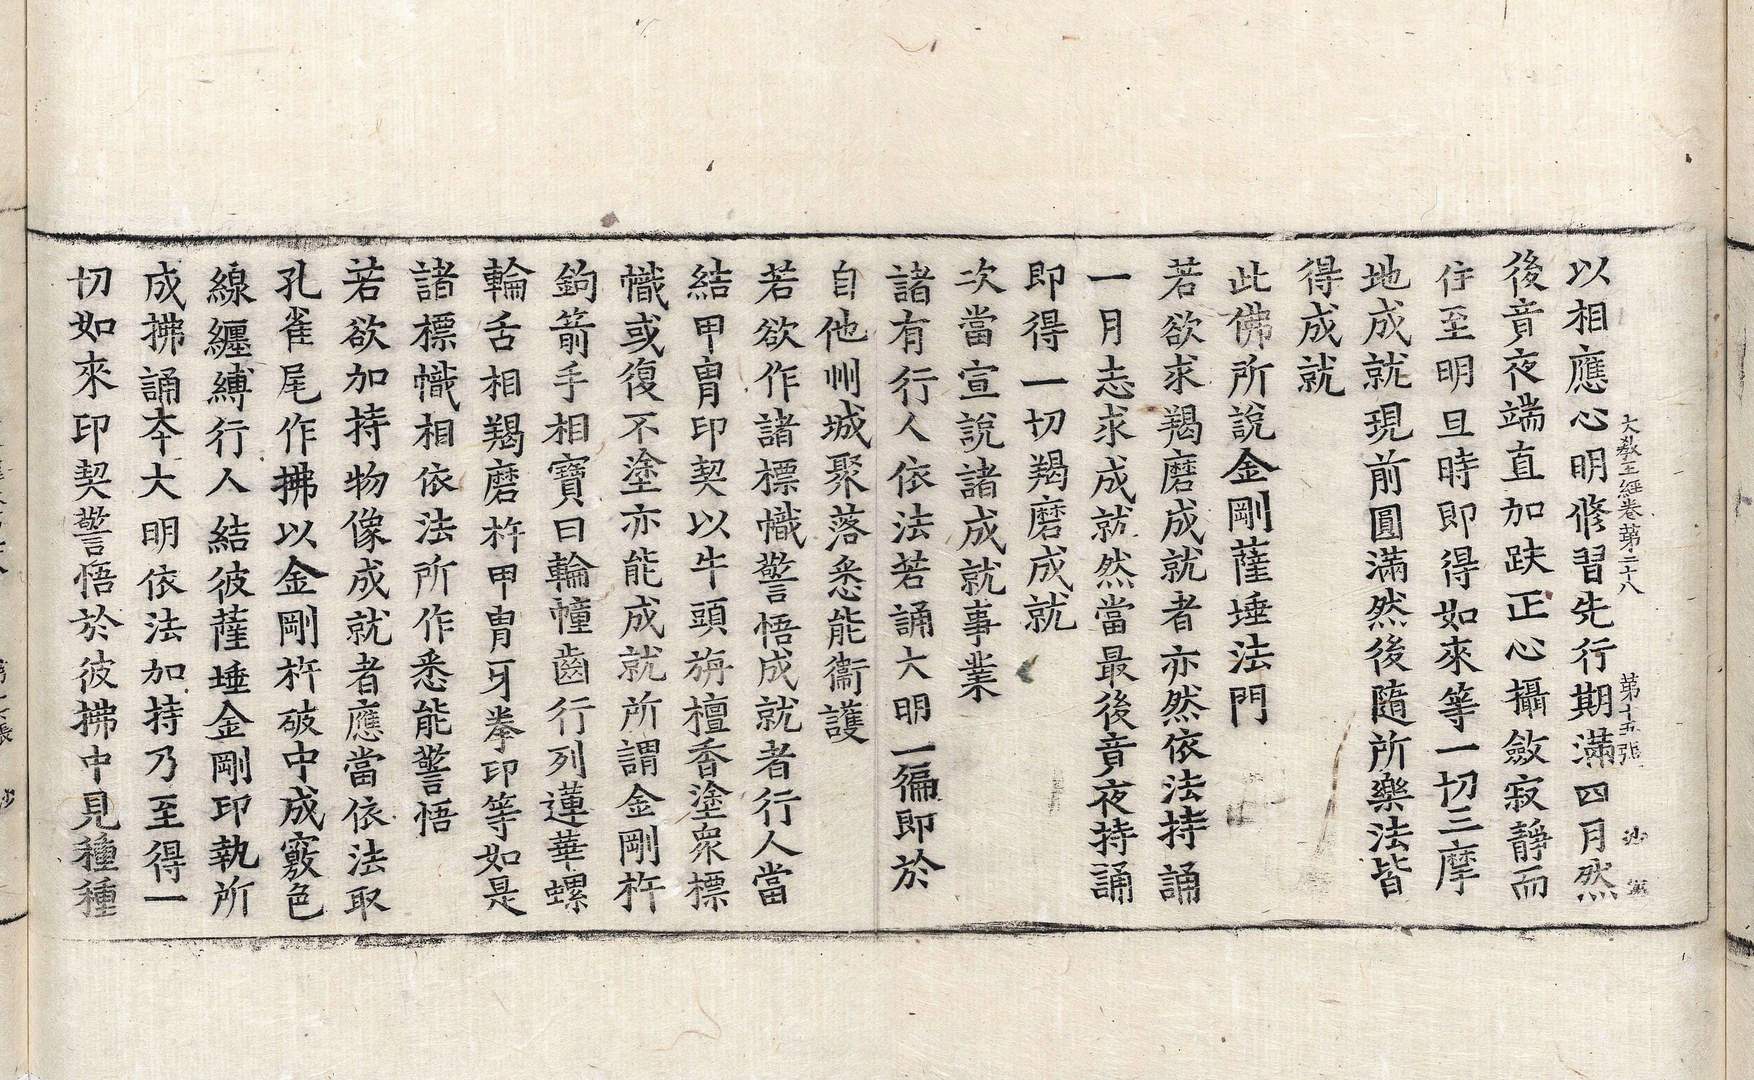 大教王經卷第二十八　第十五張　沙
以相應心明修習先行期滿四月然
後㝛夜端直加趺正心攝斂寂靜而
住至明旦時即得如來等一切三摩
地成就現前圓滿然後隨所樂法皆
得成就
此佛所說金剛薩埵法門
若欲求羯磨成就者亦然依法持誦
一月志求成就然當最後㝛夜持誦
即得一切羯磨成就
次當宣說諸成就事業
諸有行人依法若誦大明一徧即於
自他州城聚落悉能衞護
若欲作諸標幟警悟成就者行人當
結甲冑印契以牛頭旃檀香塗眾標
幟或復不塗亦能成就所謂金剛杵
鉤箭手相寶日輪幢齒行列蓮華螺
輪舌相羯磨杵甲冑牙拳印等如是
諸標幟相依法所作悉能警悟
若欲加持物像成就者應當依法取
孔雀尾作拂以金剛杵破中成竅色
線纏縛行人結彼薩埵金剛印執所
成拂誦本大明依法加持乃至得一
切如來印契警悟於彼拂中見種種